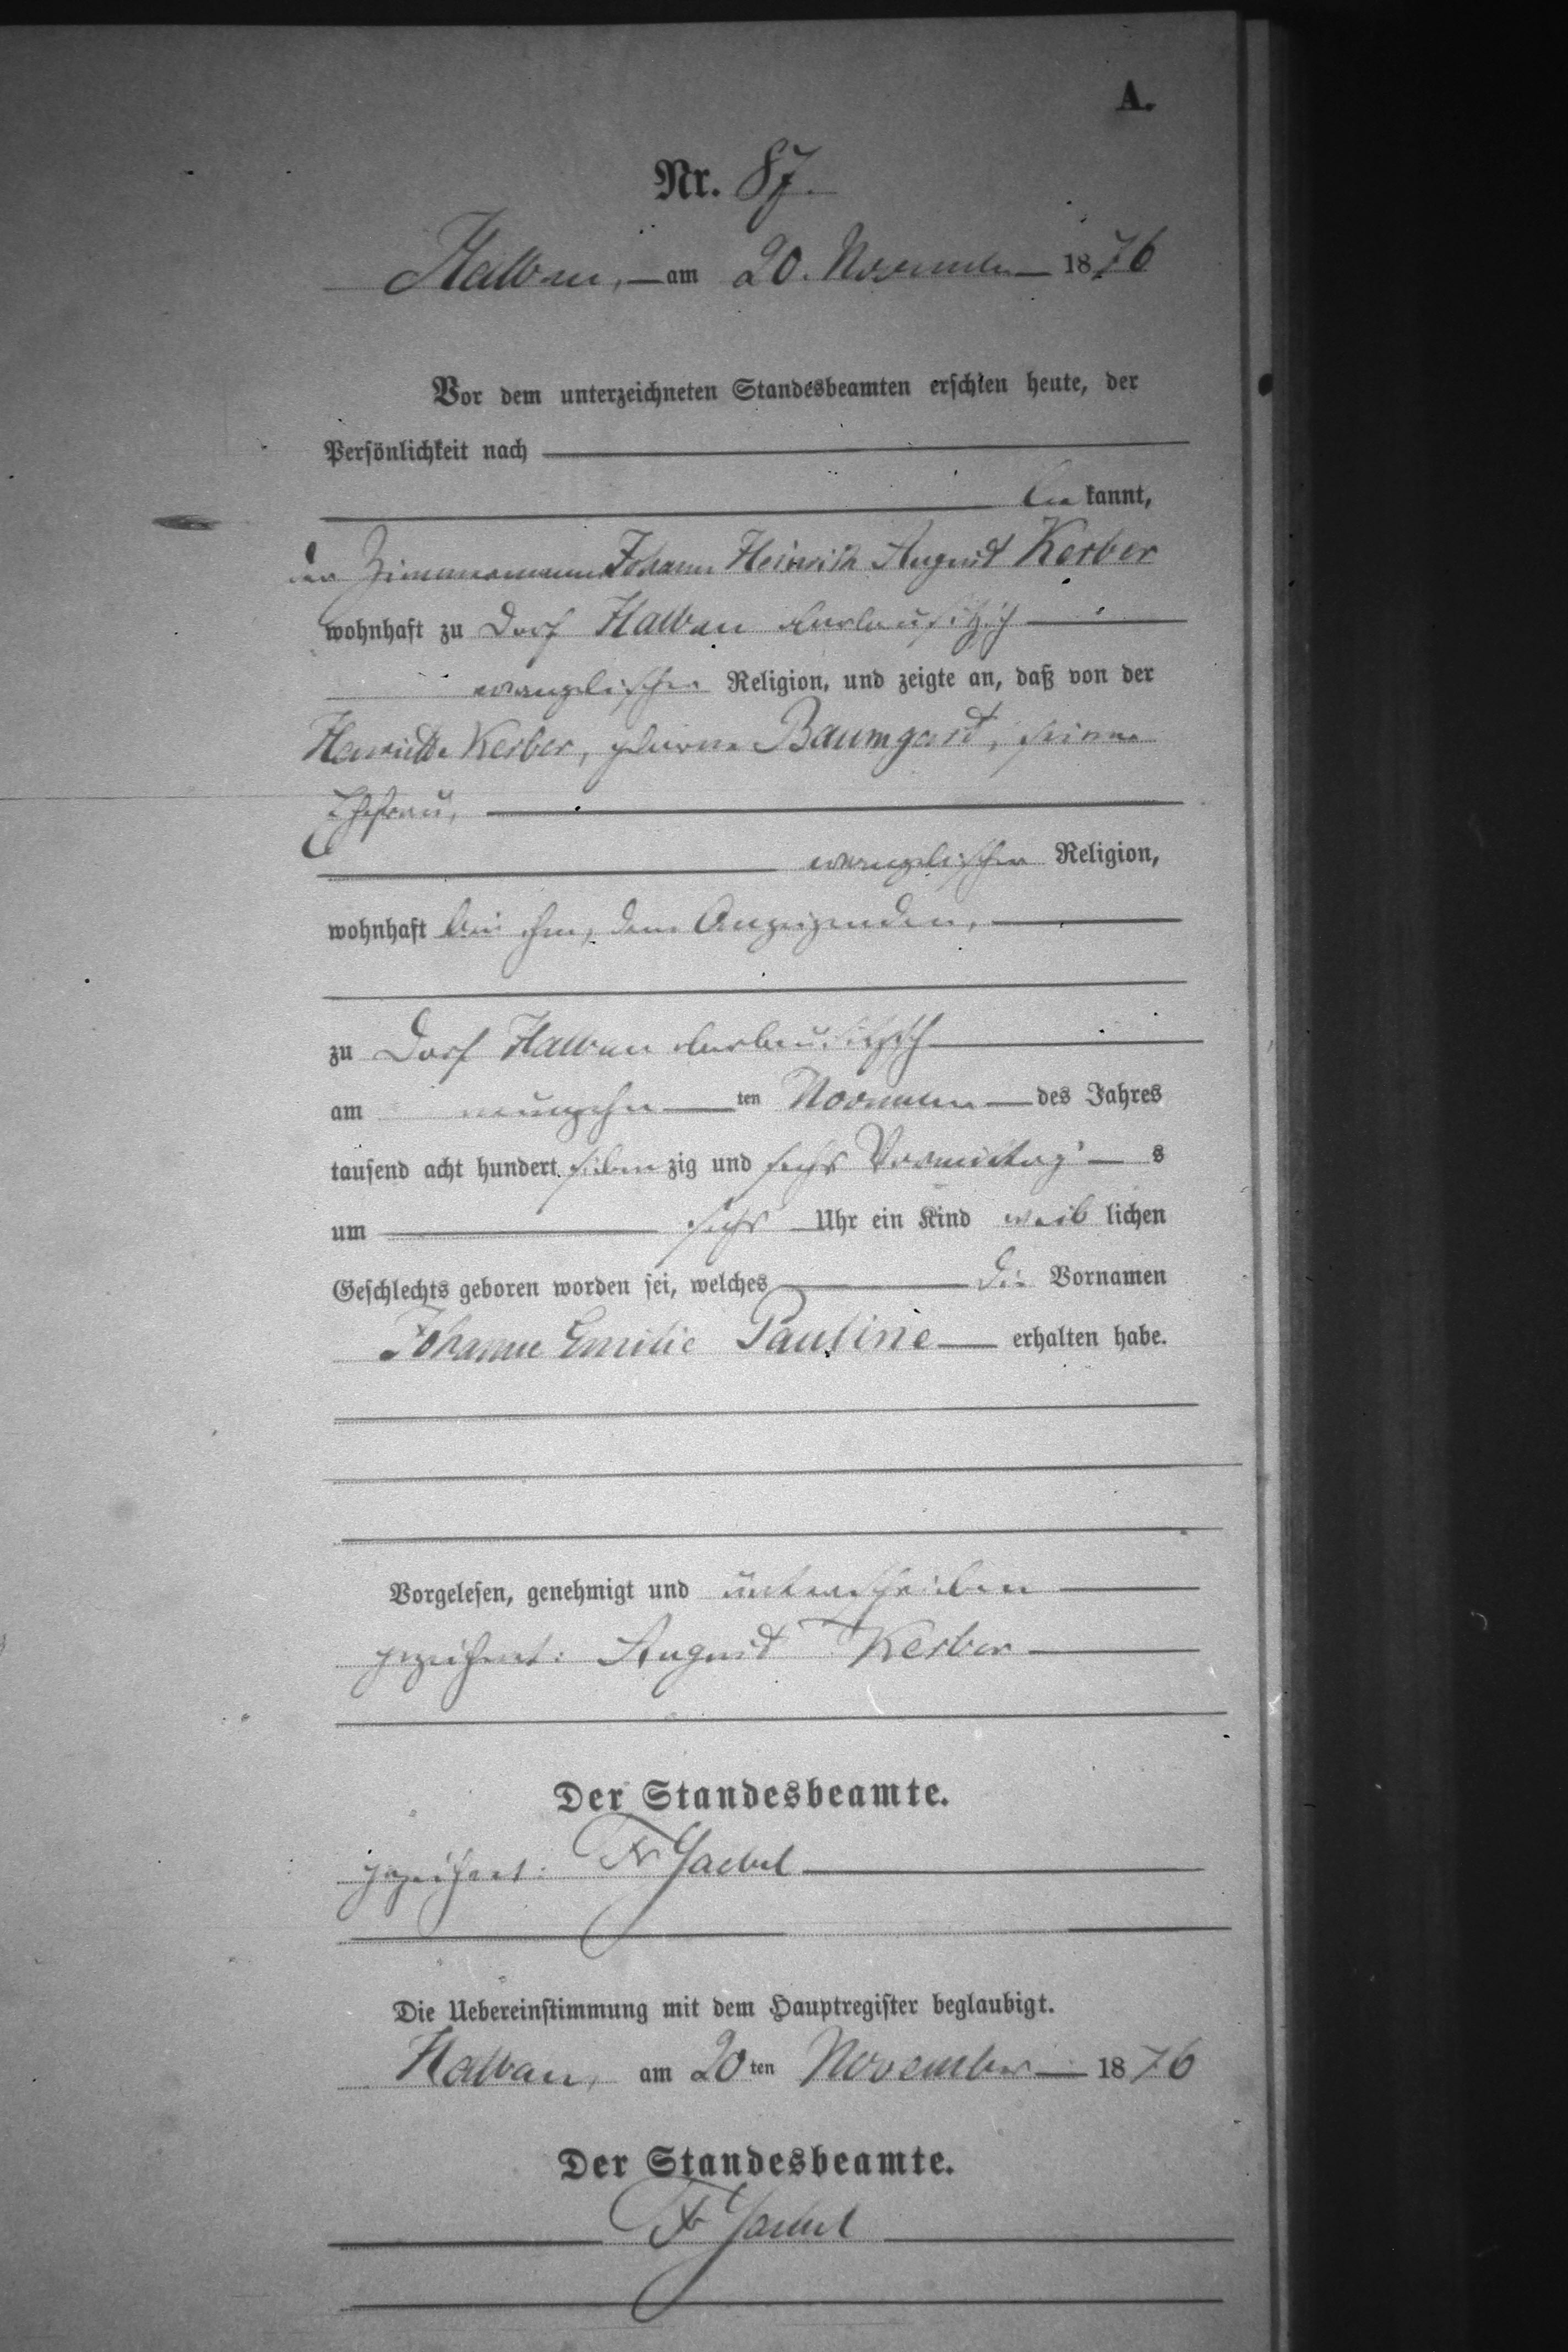 A.
Nr. 87.
Halbau, am 20. November 1876
Vor dem unterzeichneten Standesbeamten erschien heute, der
Persönlichkeit nach
be kannt,
der Zimmermann Johann Heinrich August Kerber
wohnhaft zu Dorf Halbau oberlausitzisch
evangelischer Religion, und zeigte an, daß von der
Henriette Kerber, geborne Baumgard, seiner
Ehefrau,
evangelischer Religion,
wohnhaft bei ihm, dem Anzeigenden,
zu Dorf Halbau oberlausitzisch
am neunzehn ten November des Jahres
tausend acht hundert sieben zig und sechs Vormittag s
um sechs Uhr ein Kind weib lichen
Geschlechts geboren worden sei, welches die Vornamen
Johanne Emilie Pauline erhalten habe.
Vorgelesen, genehmigt und unterschrieben
gezeichnet: August Kerber
Der Standesbeamte.
gezeichnet: Fr
Die Uebereinstimmung mit dem Hauptregister beglaubigt.
Halbau, am 20 ten November 1876
Der Standesbeamte.
Fr